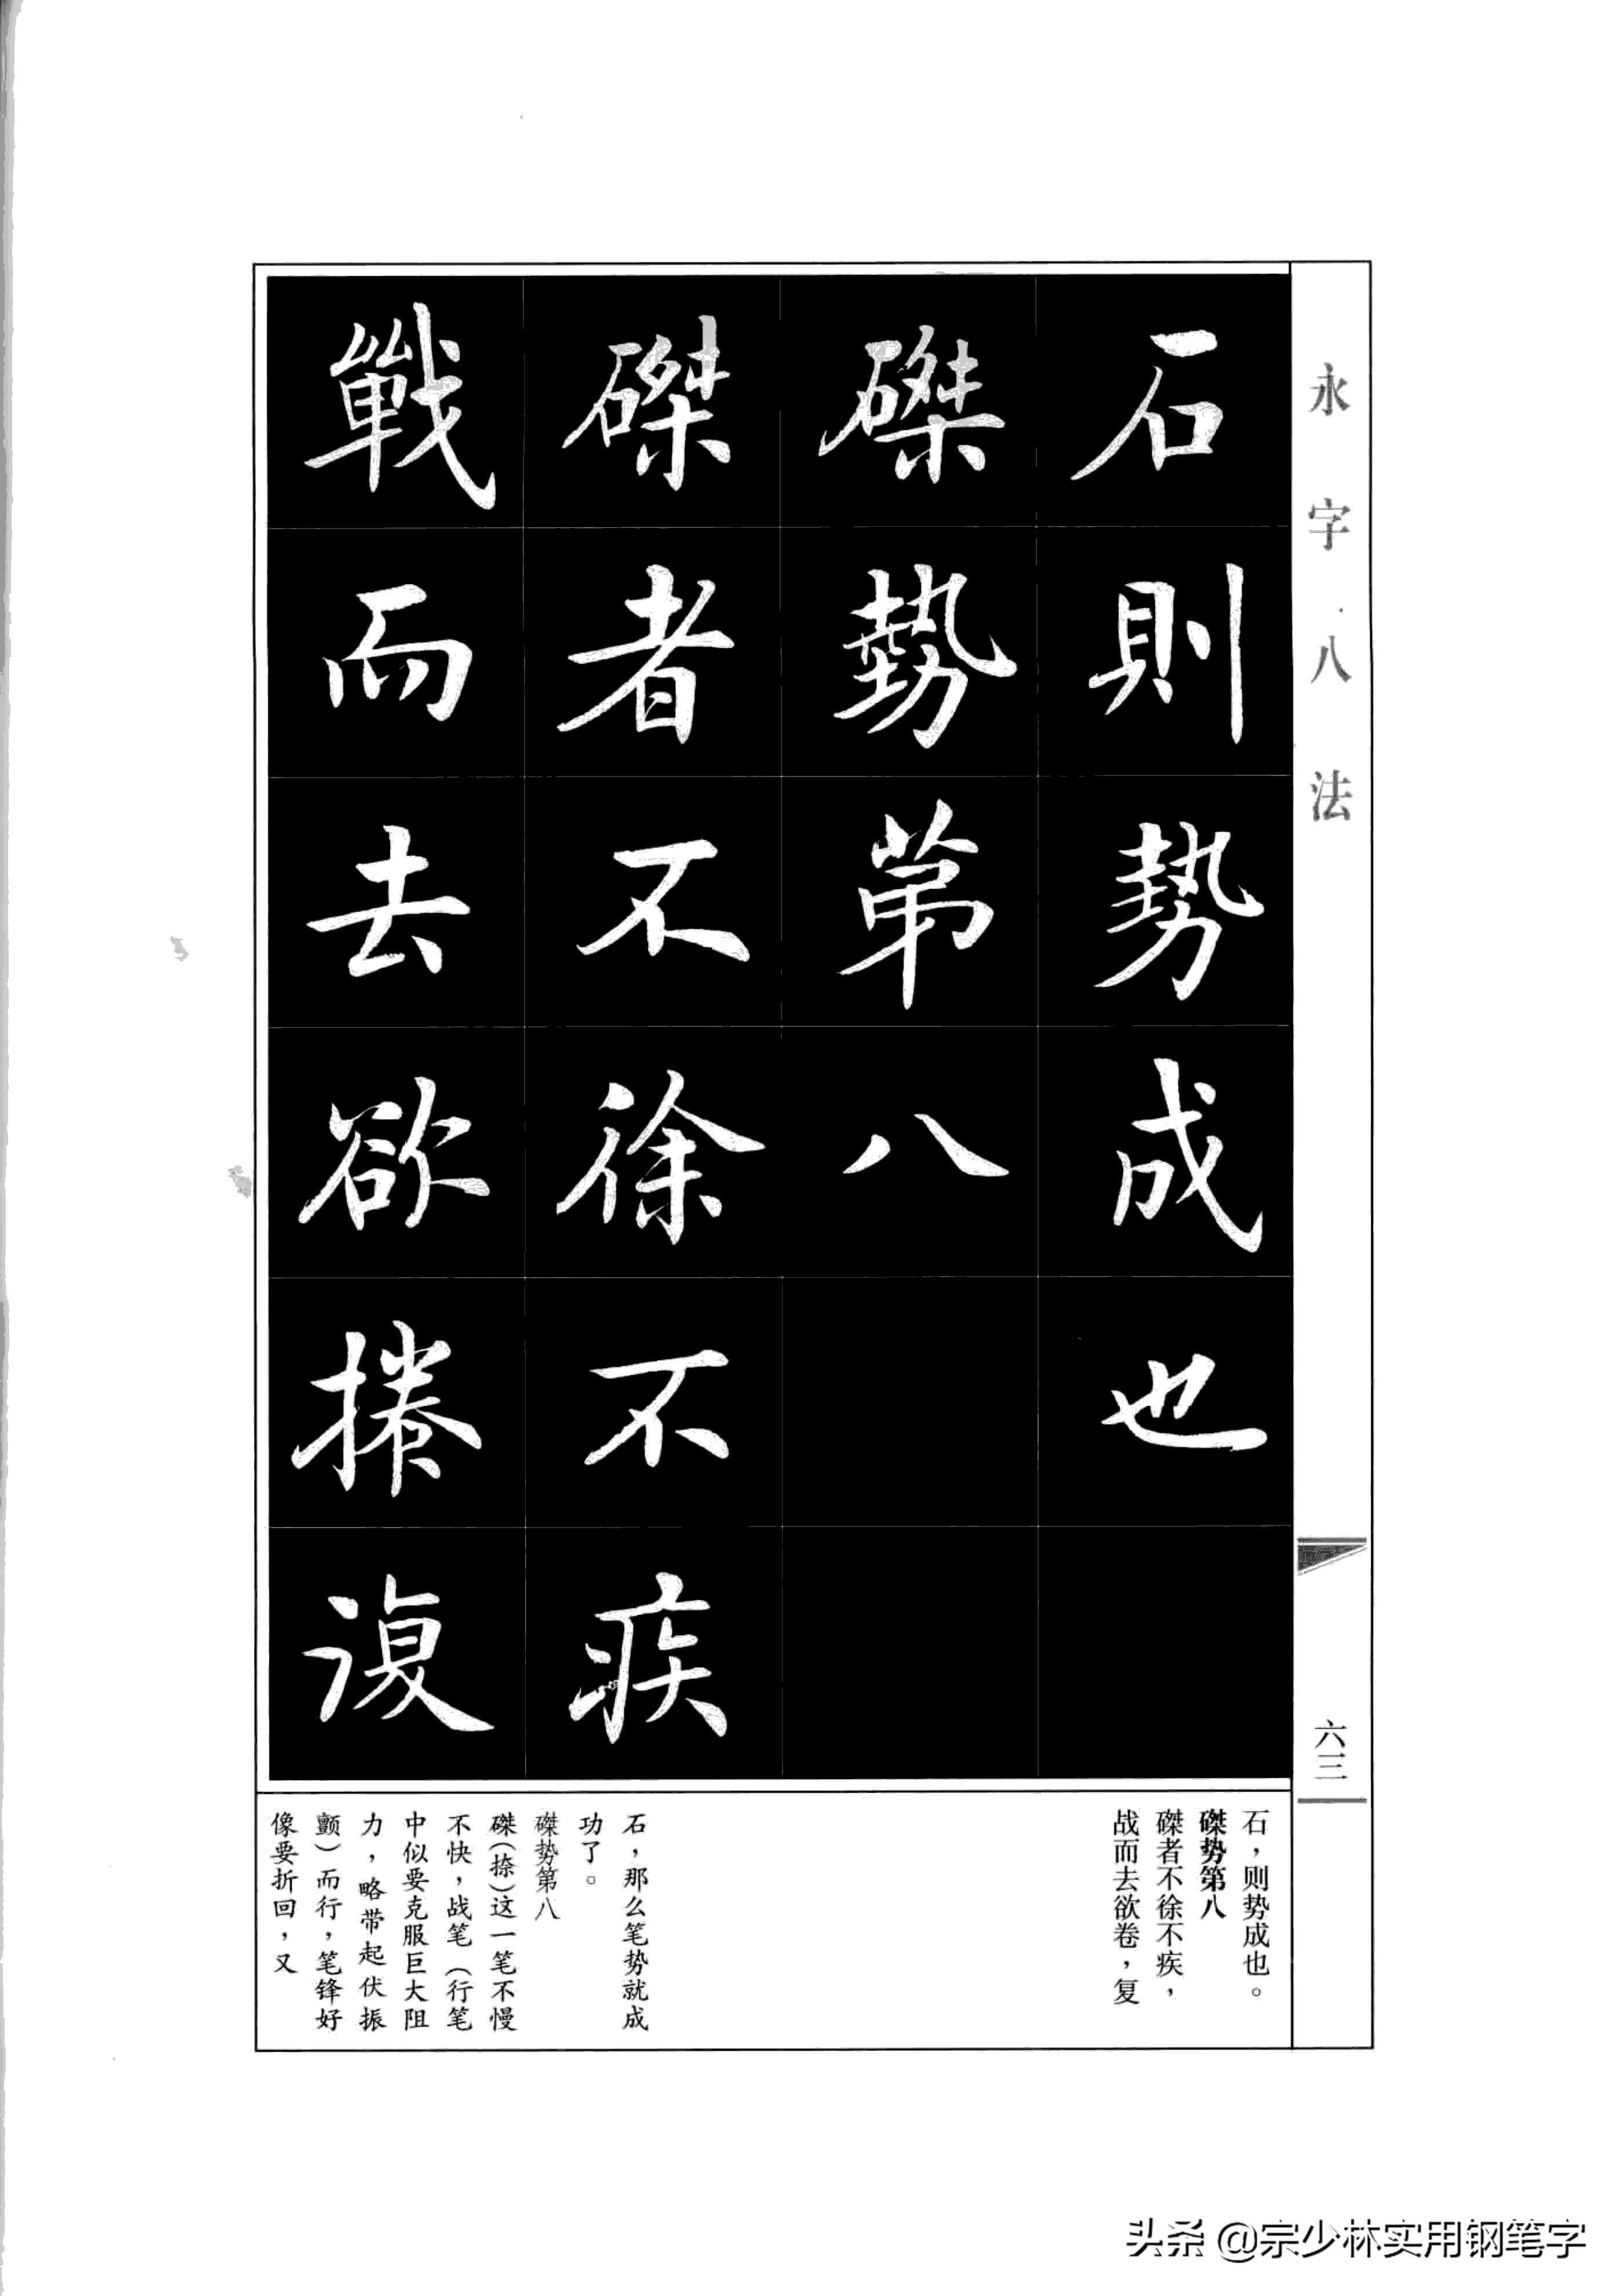 永字八法
六三
石則勢成也
磔勢第八
磔者不徐不疾
戰而去欲捲復
石，则势成也。
磔势第八
磔者不徐不疾，
战而去欲卷，复
石，那么笔势就成
功了。
磔势第八
磔（捺）这一笔不慢
不快，战笔（行笔
中似要克服巨大阻
力，略带起伏振
颤）而行，笔锋好
像要折回，又
头条 @宗少林实用钢笔字